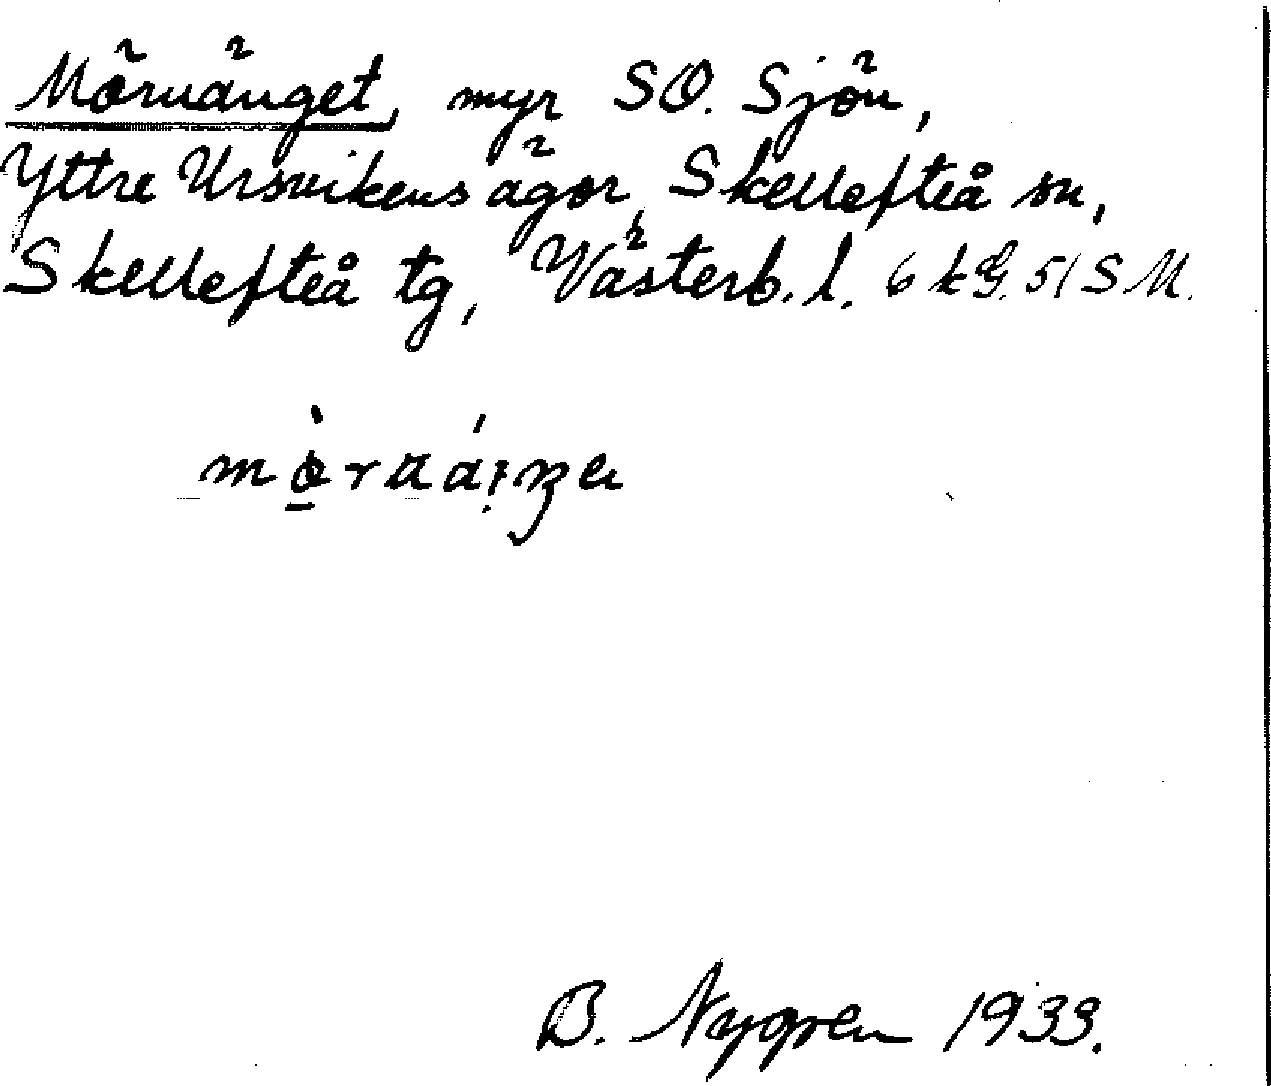 Mörvänget, myr SO. Sjön,
Yttre Ursvikens ägor, Skellefteå sn,
Skellefteå tg, Västerb. l. 6 k G. 51 S M.
B. Nygren 1933.